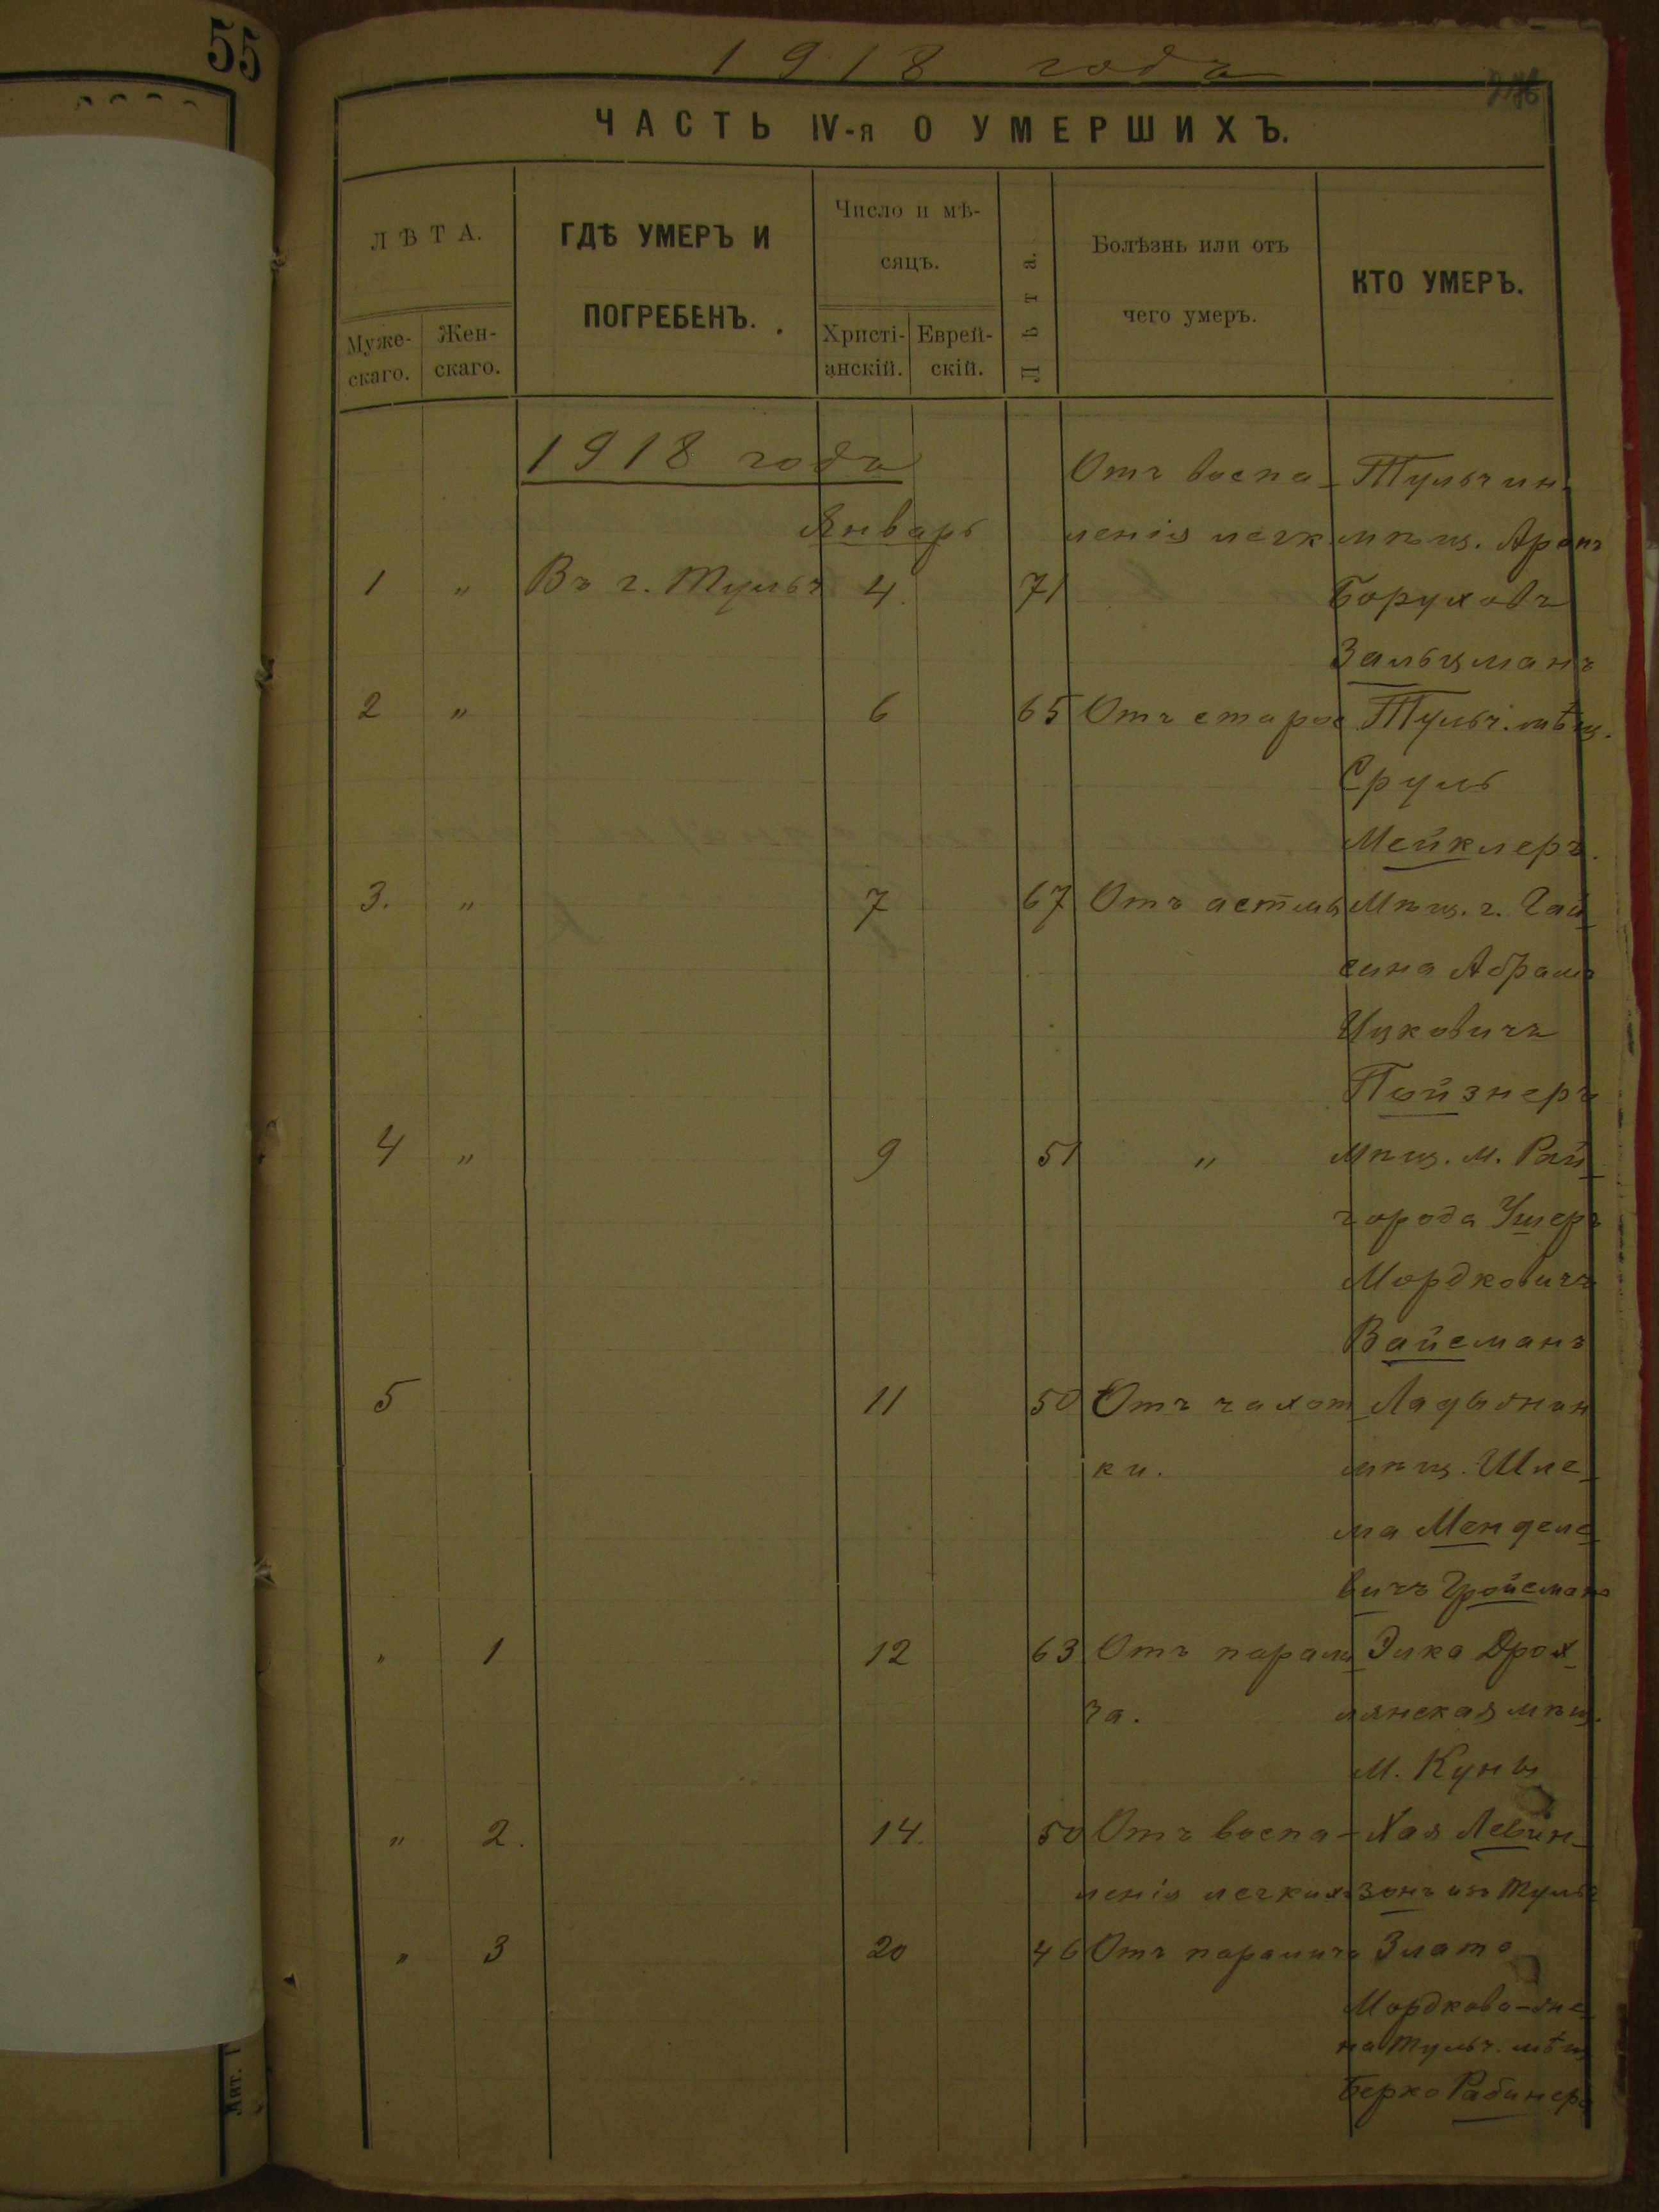 55
1918 годъ
ЧАСТЬ IV-я О УМЕРШИХЪ.
ЛѢТА.
Муже-
скаго.
Жен-
скаго.
ГДѢ УМЕРЪ И
ПОГРЕБЕНЪ.
Число и мѣ-
сяцъ.
Христі-
анскій.
Еврей-
скій.
Лѣта.
Болѣзнь или отъ
чего умеръ.
КТО УМЕРЪ.
1918 годъ
Отъ воспа- Тульчин.
Январь ленія легк мѣщ. Аронъ
1 " Въ г. Тульч 4 71 Боруховъ
Зальцманъ
2 " 6 65 Отъ старос Тульч. мѣщ.
Сруль
Мейклеръ.
3. " 7 67 Отъ астмы Мѣщ. г. Гай-
сина Абрамъ
Ицковичъ
Пойзнеръ
4 " 9 51 " Мѣщ. м. Рай-
города Ушеръ
Мордковичъ
Вайсманъ
5 11 50 Отъ чахот- Ладыжин
ки. мѣщ. Шле-
ма Менделе-
вичъ Гройсманъ
" 1 12 63 Отъ парали- Элка Дрох-
ча. лянская мѣщ.
м. Куны
" 2. 14. 50 Отъ воспа- Хая Левин-
ленія легкихъ зонъ изъ Тульч
" 3 20 46 Отъ паралича Злата
Мордкова-же-
на Тульч. мѣщ
Берко Рабинеръ